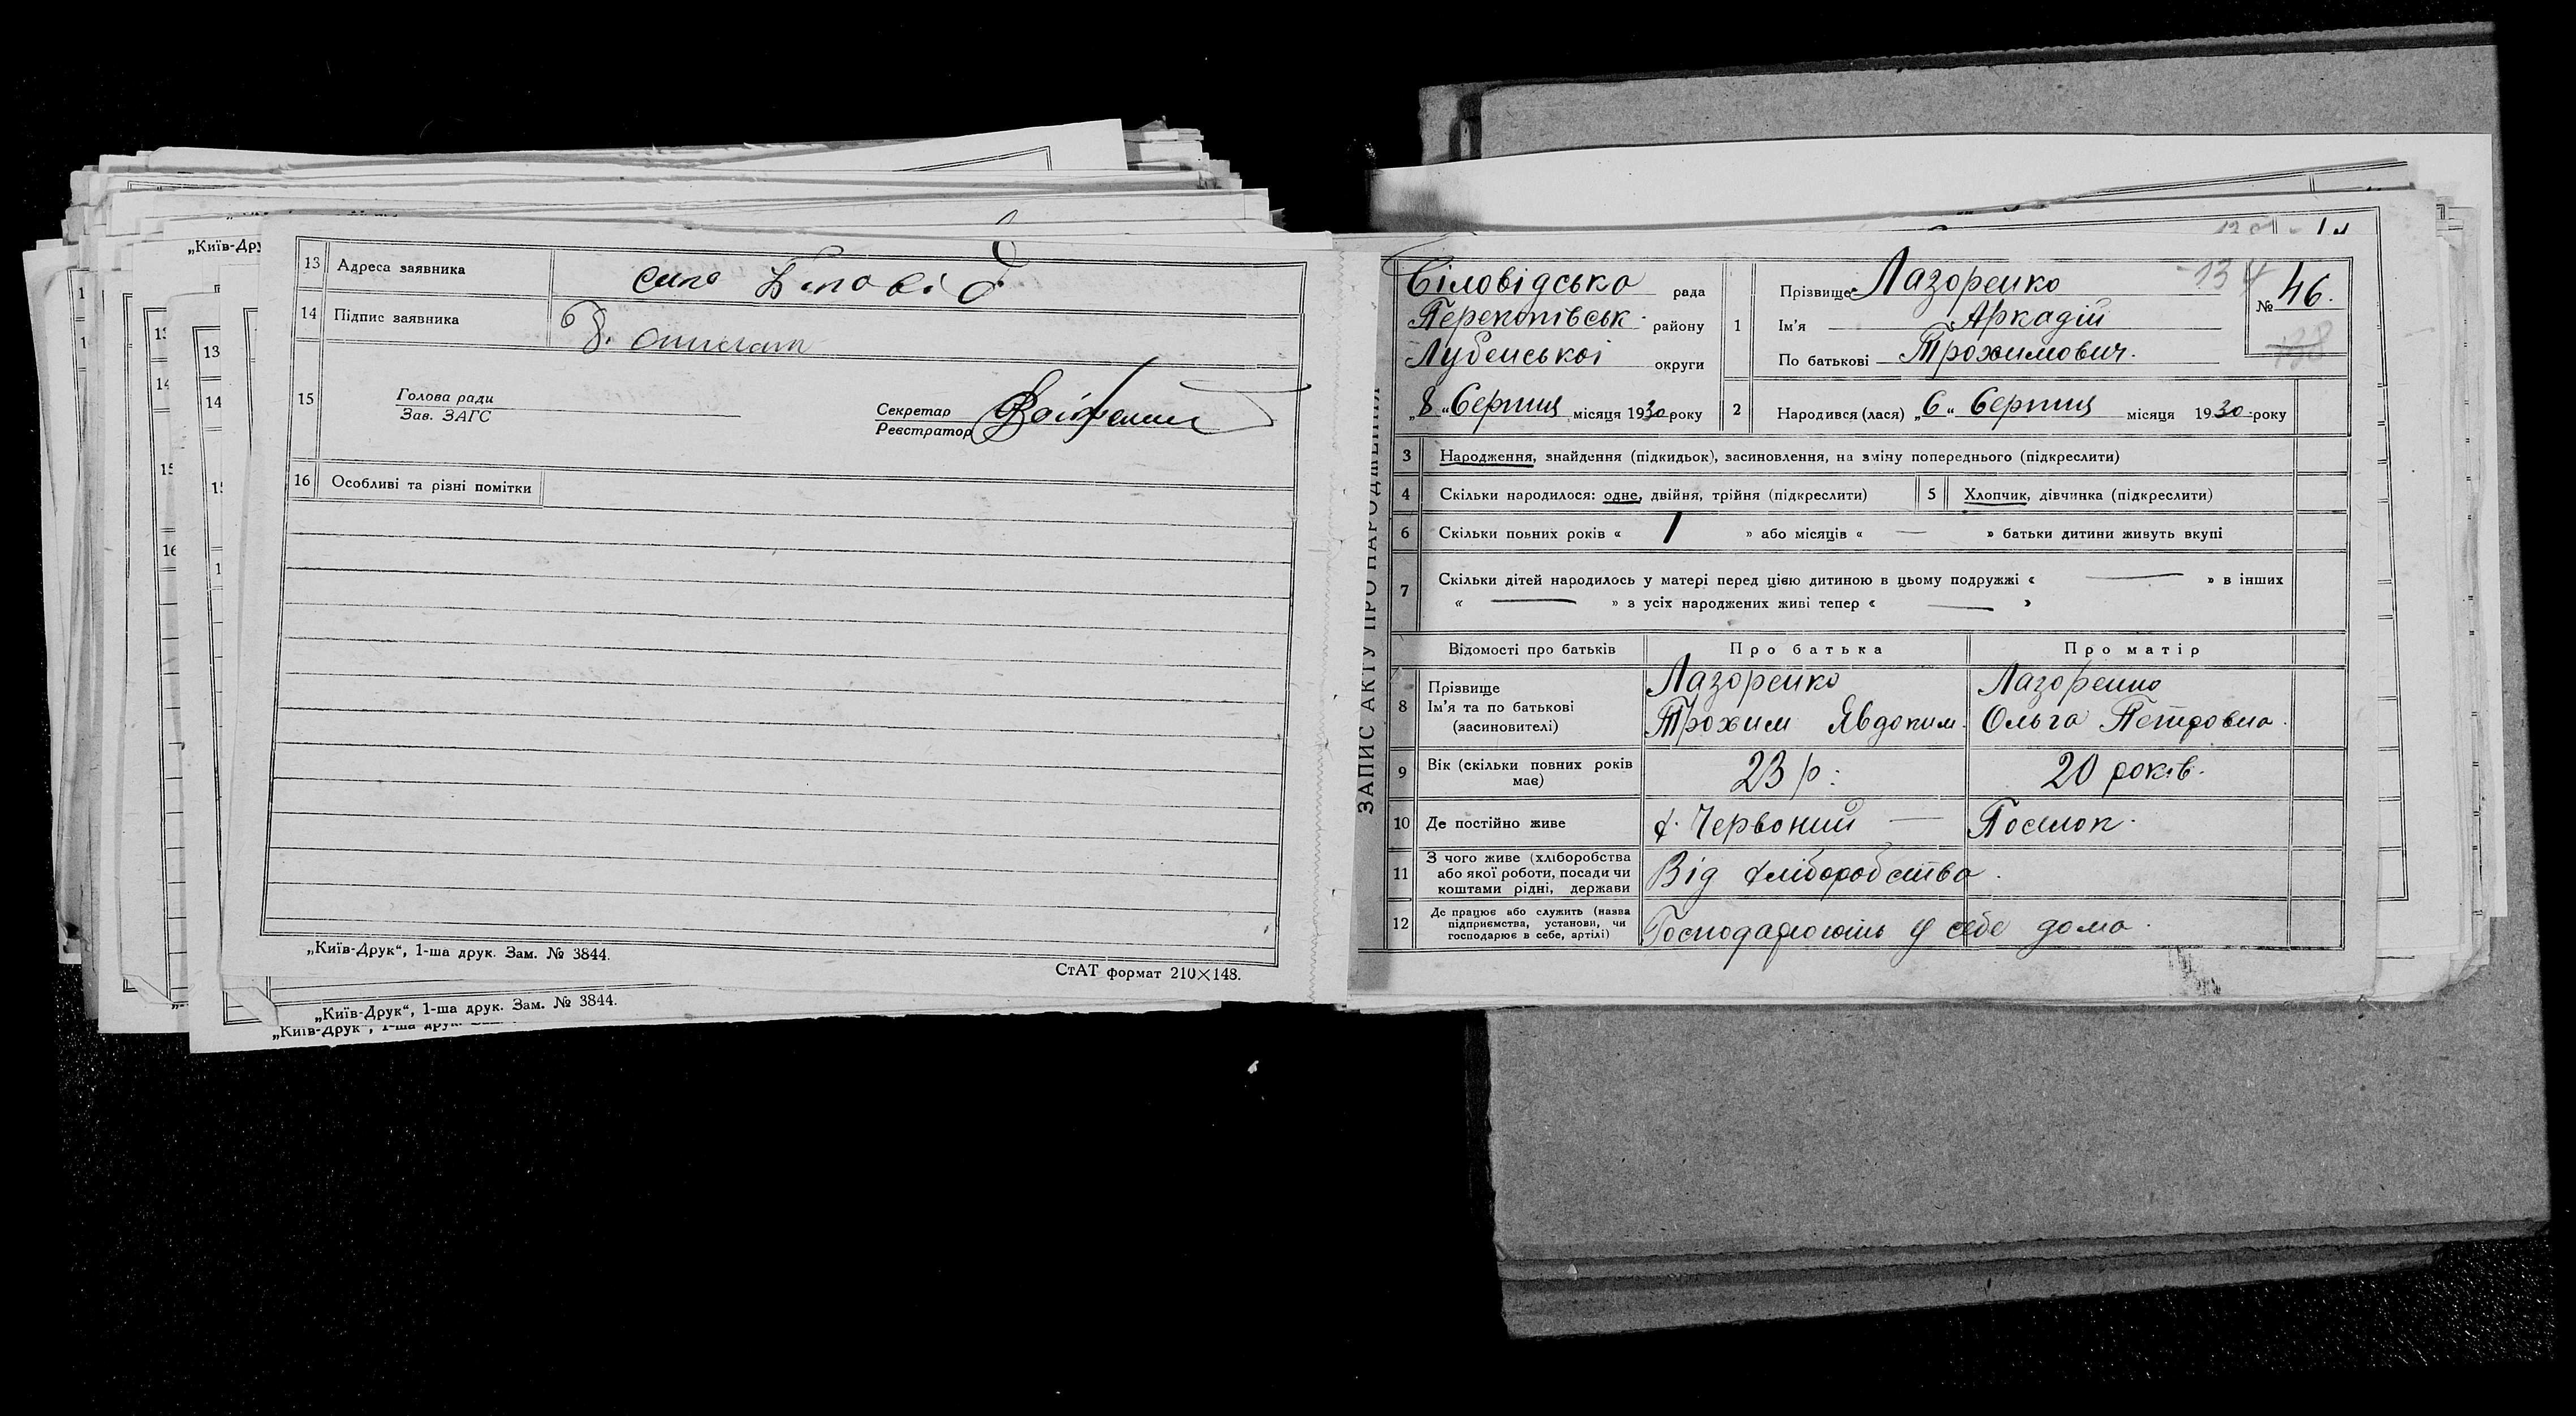 13 Адреса заявника село Біловід
14 Підпис заявника
15 Голова ради
Зав. ЗАГС
Секретар
Реєстратор
16 Особливі та різні помітки
„Київ-Друк“, 1-ша друк. Зам. № 3844.
СтАТ формат 210×148.
„Київ-Друк“, 1-ша друк. Зам. № 3844.
ЗАПИС АКТУ ПРО НАРОДЖЕННЯ
Біловідська рада
Перекопівськ. району
Лубенської округи
„8“ Серпня місяця 1930 року
1 Прізвище Лазоренко
Ім'я Аркадій
По батькові Трохимович.
134
№ 46.
138
2 Народився (лася) „6“ Серпня місяця 1930 року
3 Народження, знайдення (підкидьок), засиновлення, на зміну попереднього (підкреслити)
4 Скільки народилося: одне, двійня, трійня (підкреслити) 5 Хлопчик, дівчинка (підкреслити)
6 Скільки повних років « 1 » або місяців « — » батьки дитини живуть вкупі
7 Скільки дітей народилось у матері перед цією дитиною в цьому подружжі « — » в інших
« — » з усіх народжених живі тепер « — »
Відомості про батьків Про батька Про матір
8 Прізвище Лазоренко Лазоренко
Ім'я та по батькові Трохим Явдоким. Ольга Петровна.
(засиновителі)
9 Вік (скільки повних років має) 23 р. 20 років.
10 Де постійно живе х. Червоний — Посилок.
11 З чого живе (хліборобства
або якої роботи, посади чи
коштами рідні, держави Від хліборобства.
12 Де працює або служить (назва
підприємства, установи, чи
господарює в себе, артілі) Господарюють у себе дома.